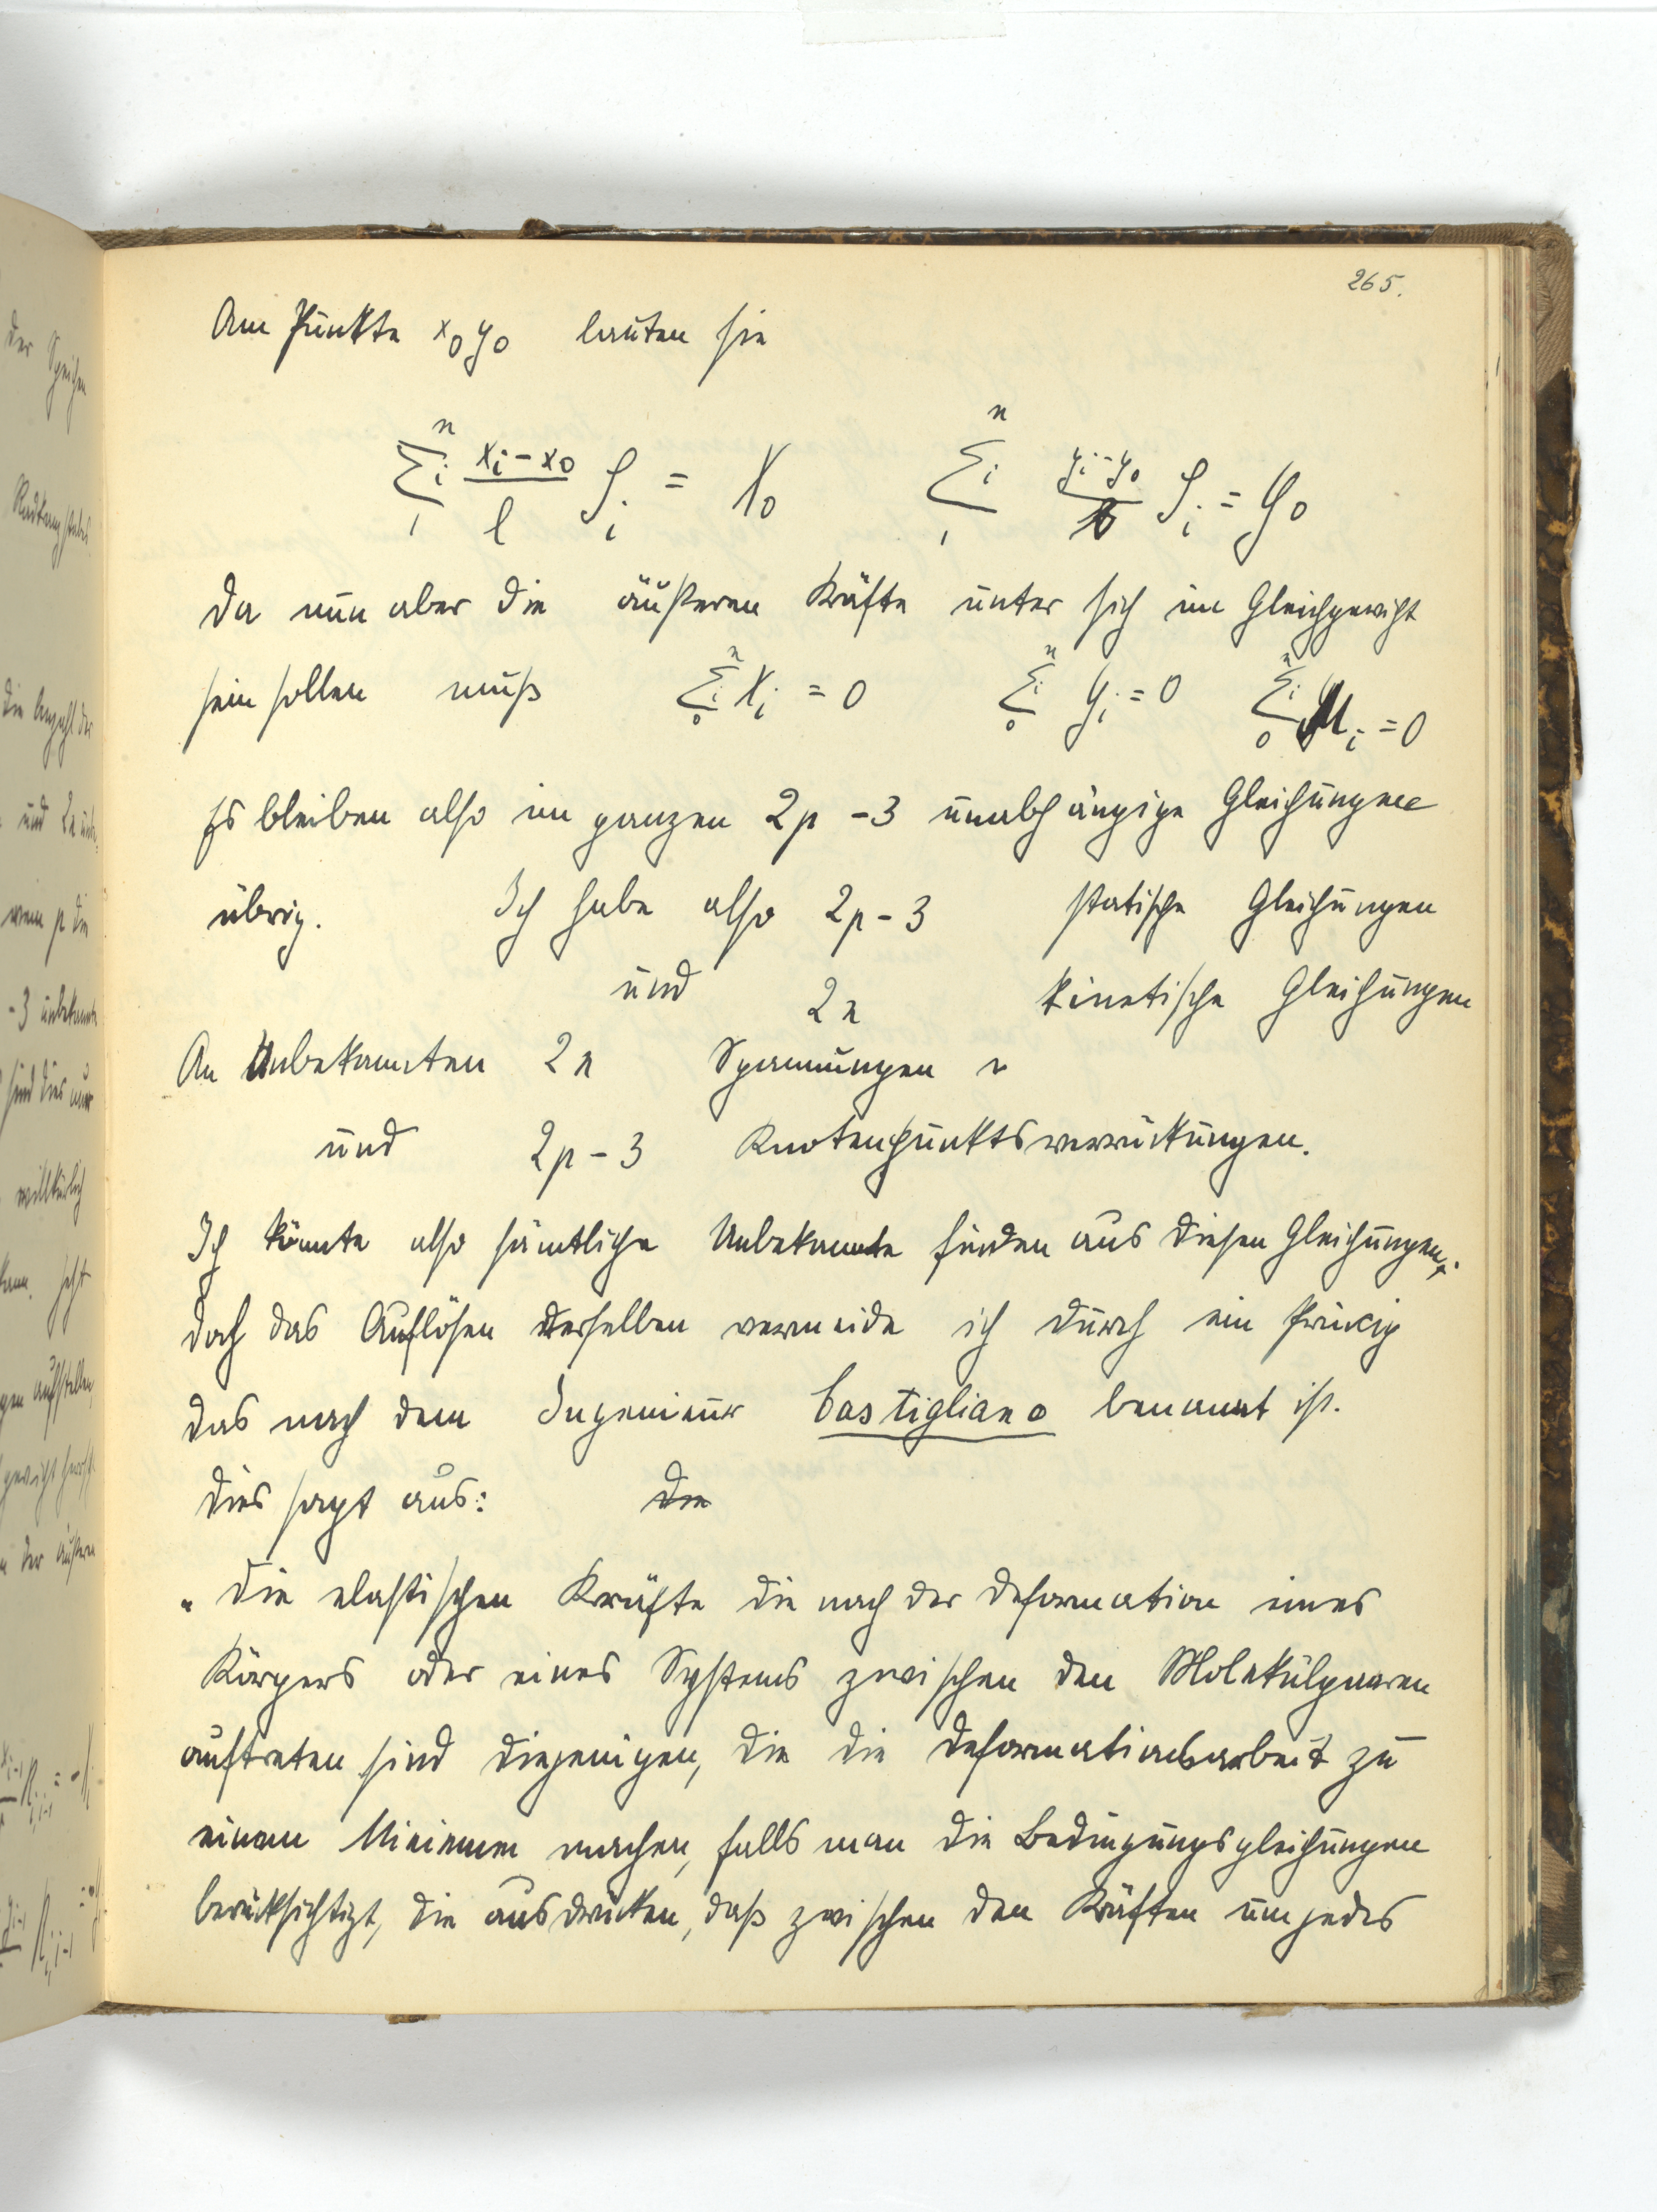 265.
Am Punkte x₀y₀ lauten sie
∑ᵢ₁ⁿ (xᵢ-x₀)/l Sᵢ = X₀ ∑ᵢ₁ⁿ (yᵢ-y₀)/l Sᵢ = Y₀
Da nun aber die äußeren Kräfte unter sich im Gleichgewicht
sein sollen muß ∑ᵢ₀ⁿ Xᵢ = 0 ∑ᵢ₀ⁿ Yᵢ = 0 ∑ᵢ₀ⁿ Mᵢ = 0
Es bleiben also im ganzen 2p - 3 unabhängige Gleichungen
übrig. Ich habe also 2p - 3 statische Gleichungen
und 2n kinetische Gleichungen
An Unbekannten 2n Spannungen
und 2p - 3 Knotenpunktsverrückungen.
Ich könnte also sämtliche Unbekannte finden aus diesen Gleichungen.
doch das Auflösen derselben vermeide ich durch ein Prinzip
das nach dem Ingenieur Castigliano benannt ist.
Dies sagt aus: Die
„ Die elastischen Kräfte die nach der Deformation eines
Körpers oder eines Systems zwischen den Molekülpaaren
auftreten sind diejenigen, die die Deformationsarbeit zu
einem Minimum machen, falls man die Bedingungsgleichungen
berücksichtigt, die ausdrücken, daß zwischen den Kräften um jedes